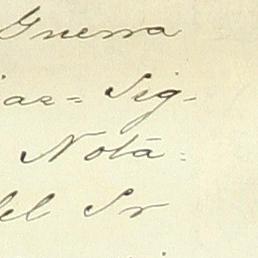 Guerra
ias= Sig-
Notá=
del Sr